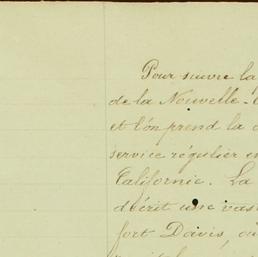 Pour suivre la
de la Nouvelle-
et l'on prend la
service régulier en
Californie. La
décrit une vas
fort Davis, où